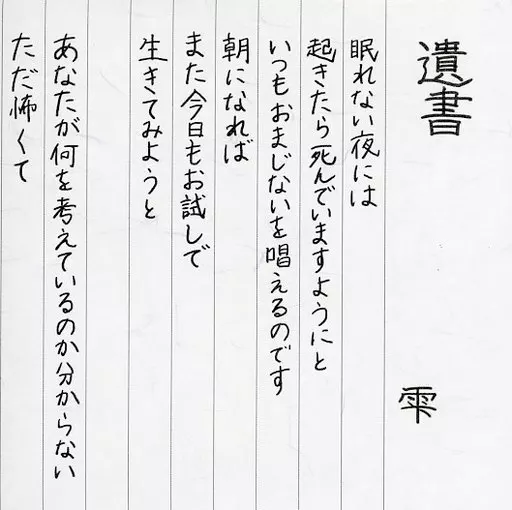 遺書
雫
眠れない夜には
起きたら死んでいますようにと
いつもおまじないを唱えるのです
朝になれば
また今日もお試しで
生きてみようと
あなたが何を考えているのか分からない
ただ怖くて